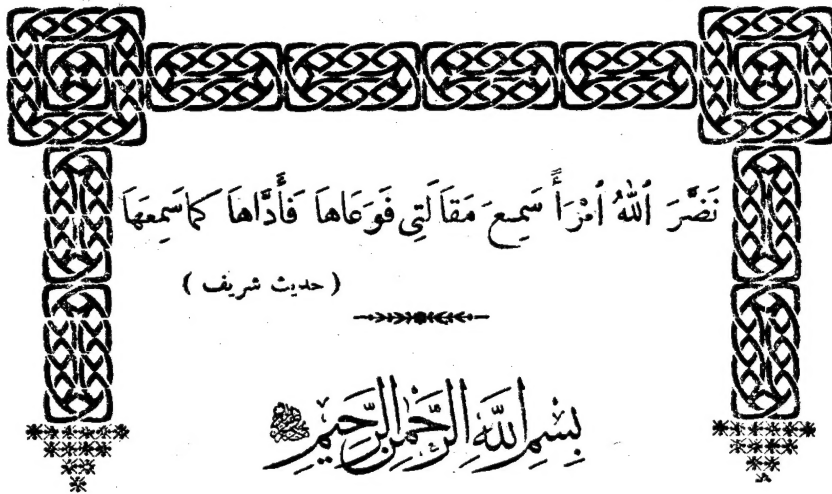 نَضَّرَ ٱللهُ ٱمْرَأً سَمِعَ مَقَالَتِي فَوَعَاهَا فَأَدَّاهَا كَمَا سَمِعَهَا
( حديث شريف )
بِسْمِ اللَّهِ الرَّحْمنِ الرَّحِيمِ